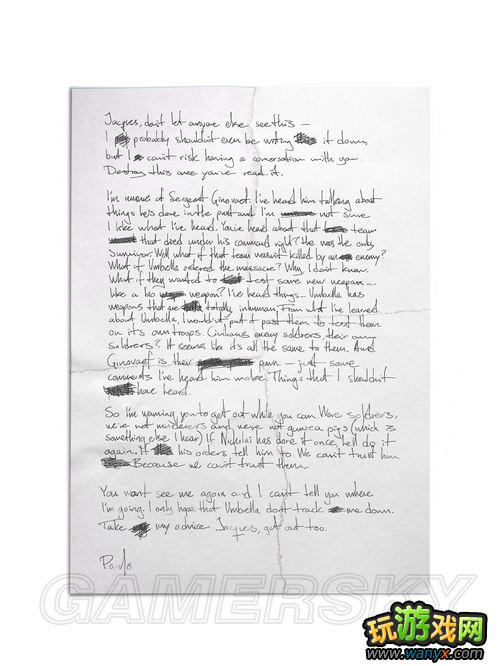 Jacques, don't let anyone else see this –
I probably shouldn't even be writing it down,
but I can't risk having a conversation with you.
Destroy this once you've read it.
I'm unsure of Sergeant Ginovaef. I've heard him talking about
things he's done in the past and I'm not sure
I like what I've heard. You've heard about that team
that died under his command right? He was the only
survivor. Well what if that team wasn't killed by an enemy?
What if Umbrella ordered the massacre? Why, I don't know.
What if they wanted to test some new weapon...
like a bio weapon? I've heard things... Umbrella has
weapons that are totally inhuman. From what I've learned
about Umbrella, I wouldn't put it past them to test them
on it's own troops. Civilians enemy soldiers their own
soldiers? It seems like it's all the same to them. And
Ginovaef is their pawn – just some
comments I've heard him make. Things that I shouldn't
have heard.
So I'm warning you to get out while you can. We're soldiers,
we're not murderers and we're not guinea pigs (which is
something else I hear) If Nicholai has done it once he'll do it
again. If his orders tell him to. We can't trust him.
Because we can't trust them.
You won't see me again and I can't tell you where
I'm going. I only hope that Umbrella don't track me down.
Take my advice Jacques, get out too.
Paulo
GAMERSKY
玩游戏网
www.wanyx.com